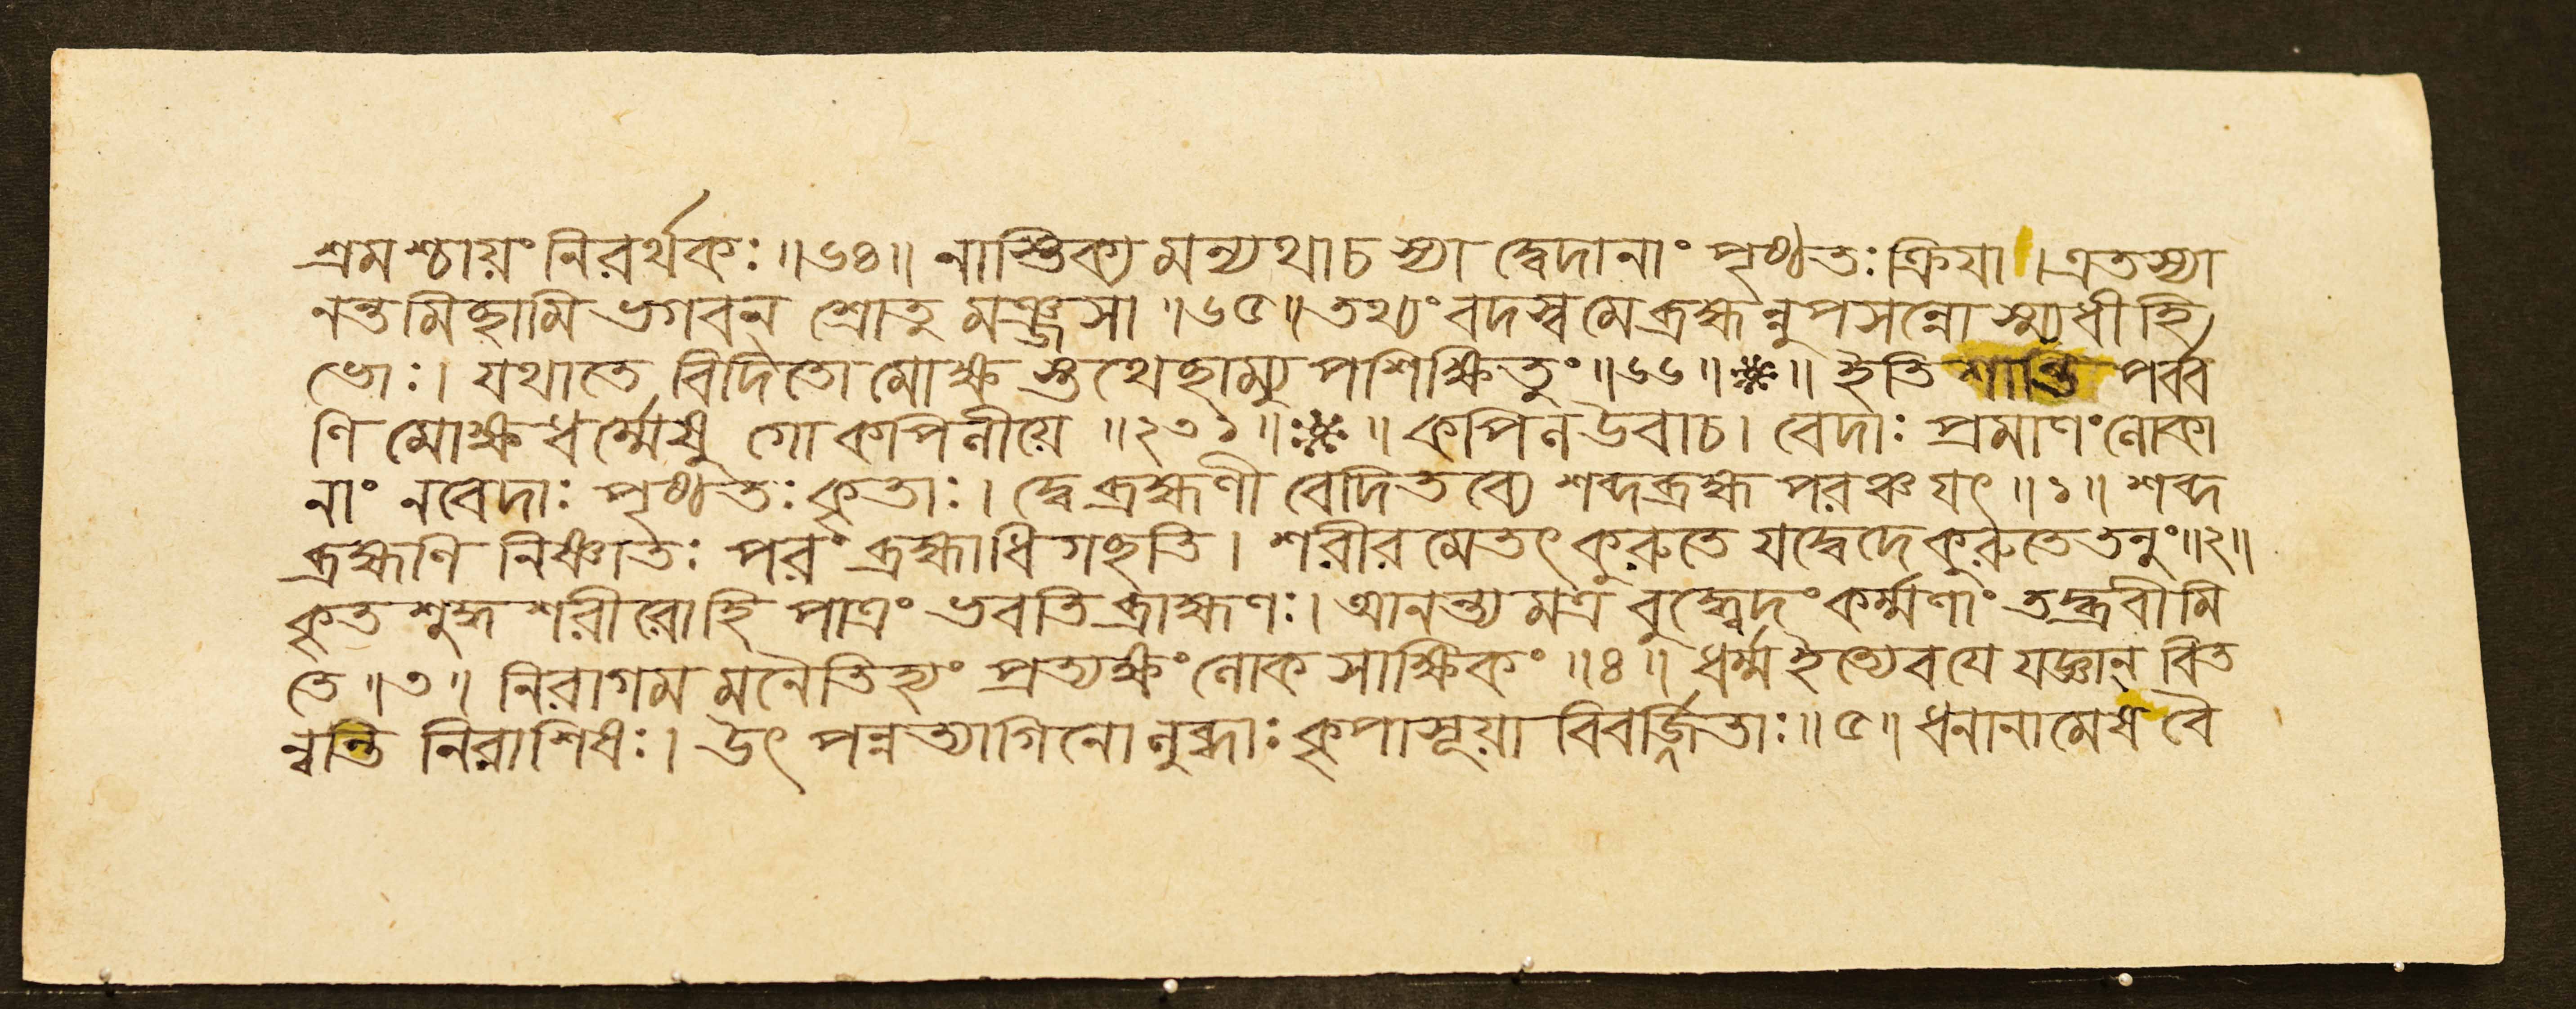 শ্রমশ্চায়ং নিরর্থকঃ ॥৬৪॥ নাস্তিক্যমন্যথাচস্যাদ্বেদানাং পৃষ্ঠতঃ ক্রিয়া । এতস্যা
নন্তমিচ্ছামি ভগবন্ শ্রোতুমঞ্জসা ॥৬৫॥ তথ্যং বদস্বমেব্রহ্মন্নুপসন্নোস্ম্যধীহি
ভোঃ । যথাতে বিদিতো মোক্ষস্তথেচ্ছাম্যুপশিক্ষিতুং ॥৬৬॥※॥ ইতি শান্তি পর্ব্ব
ণি মোক্ষধর্ম্মেষু গোকাপিলীয়ে ॥২৩১॥ঃ※ঃ॥ কপিল উবাচ । বেদাঃ প্রমাণং লোকা
নাং নবেদাঃ পৃষ্ঠতঃ কৃতাঃ । দ্বেব্রহ্মণী বেদিতব্যে শব্দব্রহ্ম পরঞ্চ যৎ ॥১॥ শব্দ
ব্রহ্মণি নিষ্ণাতঃ পরং ব্রহ্মাধিগচ্ছতি । শরীরমেতৎ কুরুতে যদ্বেদে কুরুতে তনুং ॥২॥
কৃত শুদ্ধ শরীরোহি পাত্রং ভবতি ব্রাহ্মণঃ । আনন্ত্যমত্র বুদ্ধ্বেদং কর্ম্মণাং তদ্ব্রবীমি
তে ॥৩॥ নিরাগমমনৈতিহ্যং প্রত্যক্ষং লোকসাক্ষিকং ॥৪॥ ধর্ম্ম ইত্যেব যে যজ্ঞান্ বিত
ন্বন্তি নিরাশিষঃ । উৎপন্নত্যাগিনো লুব্ধাঃ কৃপাসূয়া বিবর্জ্জিতাঃ ॥৫॥ ধনানামেষ বৈ